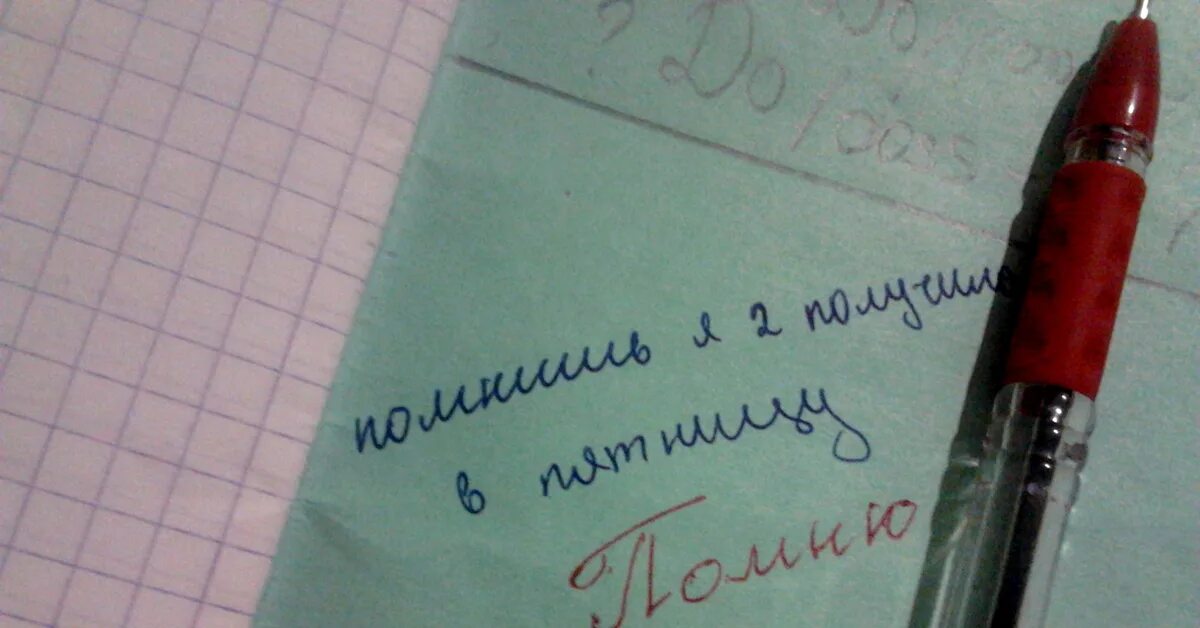 ? Do
помнишь я 2 получила
в пятницу
Помню